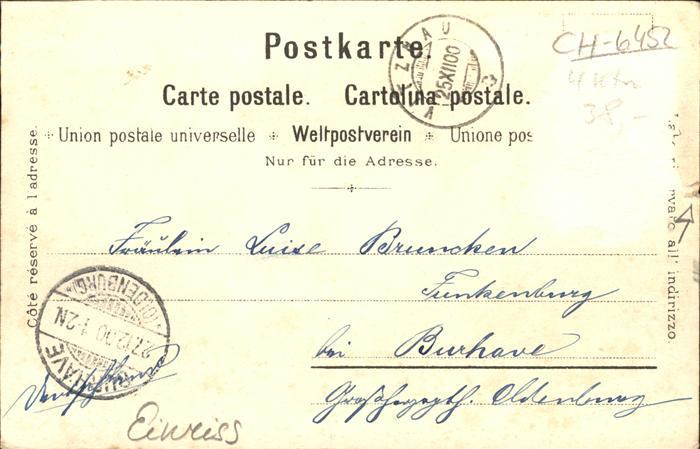 Postkarte.
Carte postale. Cartolina postale.
Union postale universelle * Weltpostverein * Unione pos
Nur für die Adresse.
Côté réservé à l'adresse.
all' indirizzo
25 XII 00
CH-6452
38,-
Fräulein Luise Bruncken
Funkenburg
bei Burhave
Großherzgth. Oldenburg
Deutschland
BURHAVE
(OLDENBURG)
27.12.00.1-2N.
Einriss